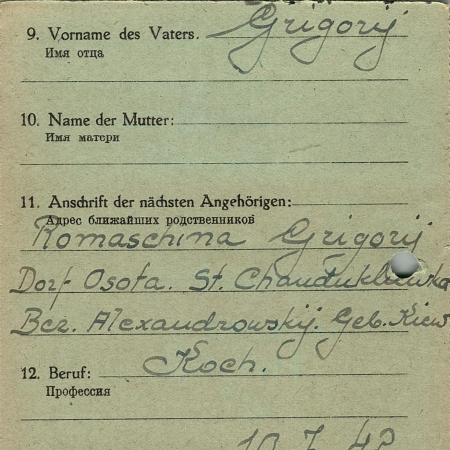 9. Vorname des Vaters. Grigorij
Имя отца
10. Name der Mutter:
Имя матери
11. Anschrift der nächsten Angehörigen:
Адрес ближайших родственников
Romaschina Grigorij
Dorf Osota. St. Chandukliewka
Bez. Alexandrowskij. Geb. Kiew
12. Beruf: Koch.
Профессия
10.7.42